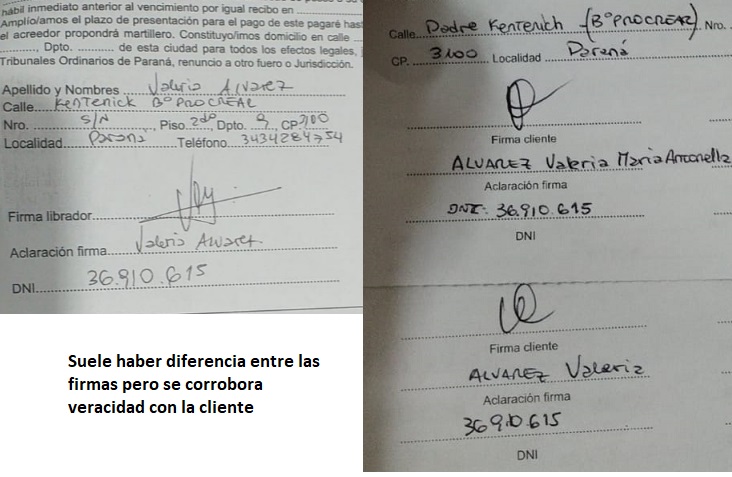 hábil inmediato anterior al vencimiento por igual recibo en
Amplio/amos el plazo de presentación para el pago de este pagaré has
el acreedor propondrá martillero. Constituyo/imos domicilio en calle
, Dpto. de esta ciudad para todos los efectos legales,
Tribunales Ordinarios de Paraná, renuncio a otro fuero o Jurisdicción.
Apellido y Nombres Valeria Alvarez
Calle Kentenick B° PROCREAR
Nro. S/N, Piso 2do, Dpto. 9, CP 3100
Localidad Paraná Teléfono. 3434284754
Firma librador
Aclaración firma Valeria Alvarez.
DNI 36.910.615
Suele haber diferencia entre las
firmas pero se corrobora
veracidad con la cliente
Calle Padre Kentenich (B° PROCREAR). Nro.
CP. 3100 Localidad Paraná
Firma cliente
ALVAREZ Valeria Maria Antonella
Aclaración firma
DNI: 36.910.615
DNI
Firma cliente
ALVAREZ Valeria
Aclaración firma
36910.615
DNI